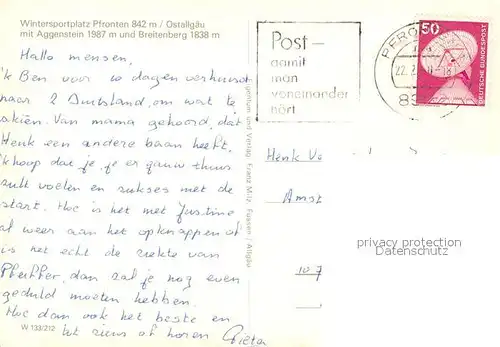 Wintersportplatz Pfronten 842 m / Ostallgäu
mit Aggenstein 1987 m und Breitenberg 1838 m
Hallo mensen,
'k Ben voor 10 dagen verhuisd
naar 2 Amtstand, om wat te
skiën. Van mama gehoord, dat
Henk een andere baan heeft.
'k hoop dat je je er gauw thuis
zult voelen en sukses met de
start. Hoe is het met Justine
al weer aan het opknappen of
is het echt de ziekte van
Pfeiffer, dan zal je nog even
geduld moeten hebben.
Hoe dan ook het beste en
tot ziens of horen Pieter
W 133/212
und Verlag Franz Milz, Füssen / Allgäu
Post –
damit
man
voneinander
hört
PFRO
22.2
89
50
DEUTSCHE BUNDESPOST
Henk Ve
Amst
107
privacy protection
Datenschutz